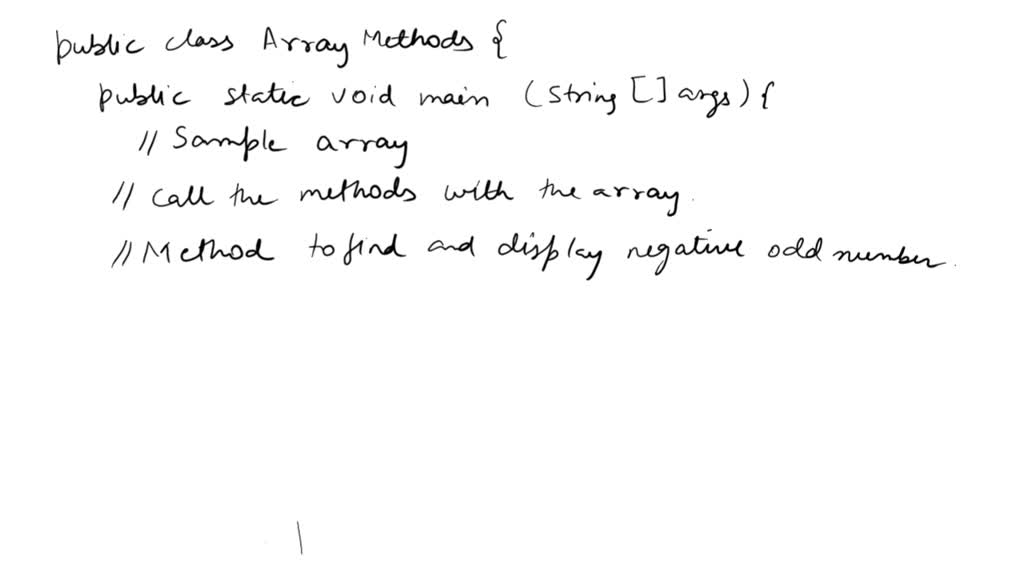 public class Array Methods {
public static void main (string [] args) {
// Sample array
// call the methods with the array.
// Method to find and display negative odd number.